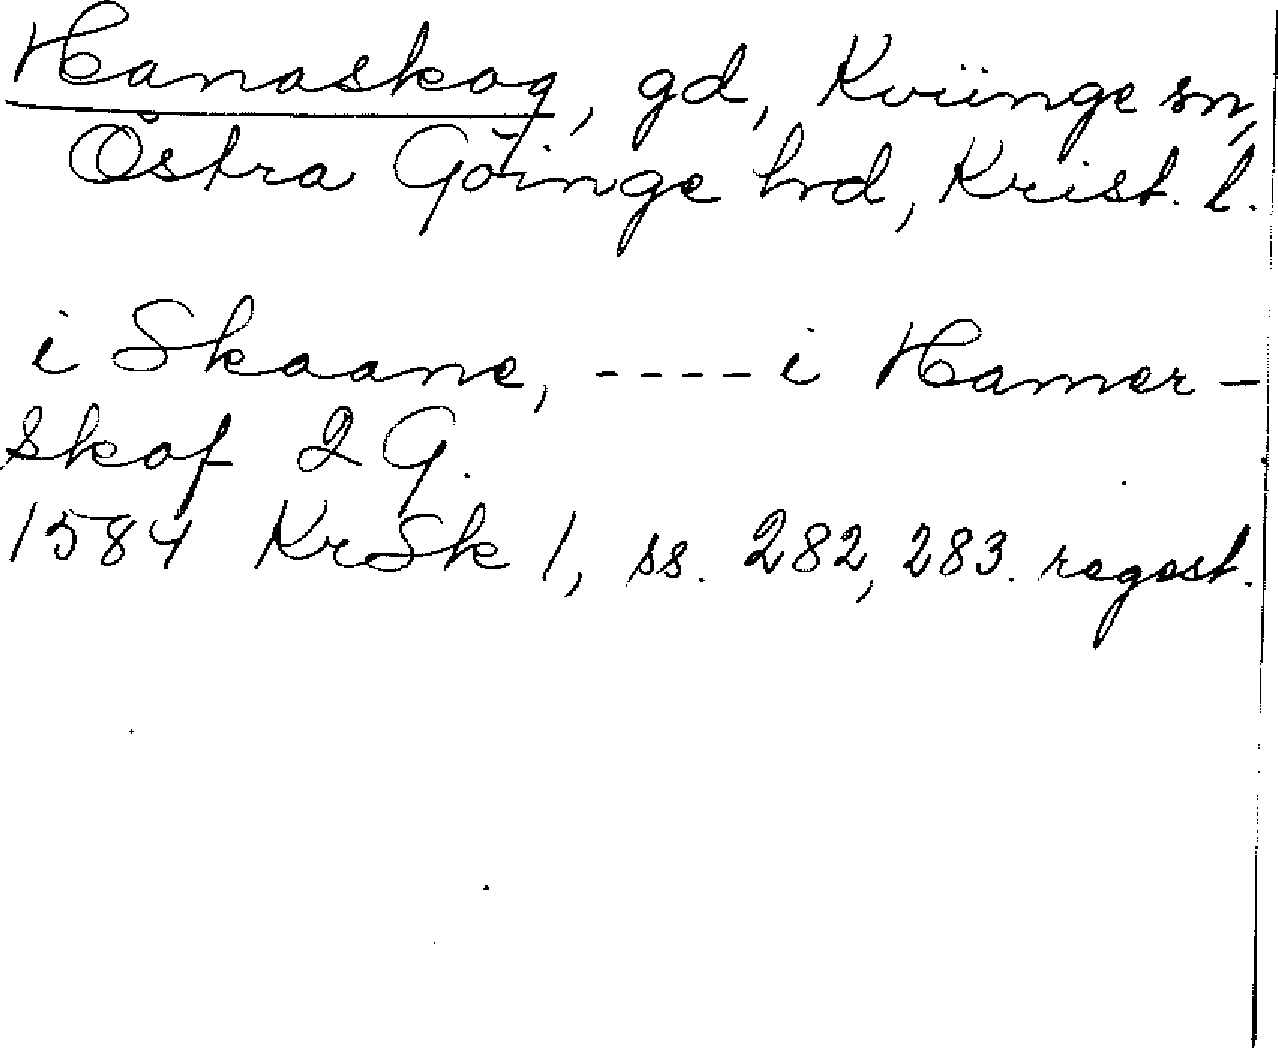 Hanaskog, gd, Kviinge sn,
Östra Göinge hrd, Krist. l.
i Skaane, ---- i Hamer-
skof 2 G.
1584 KrSk 1, ss. 282, 283. regest.